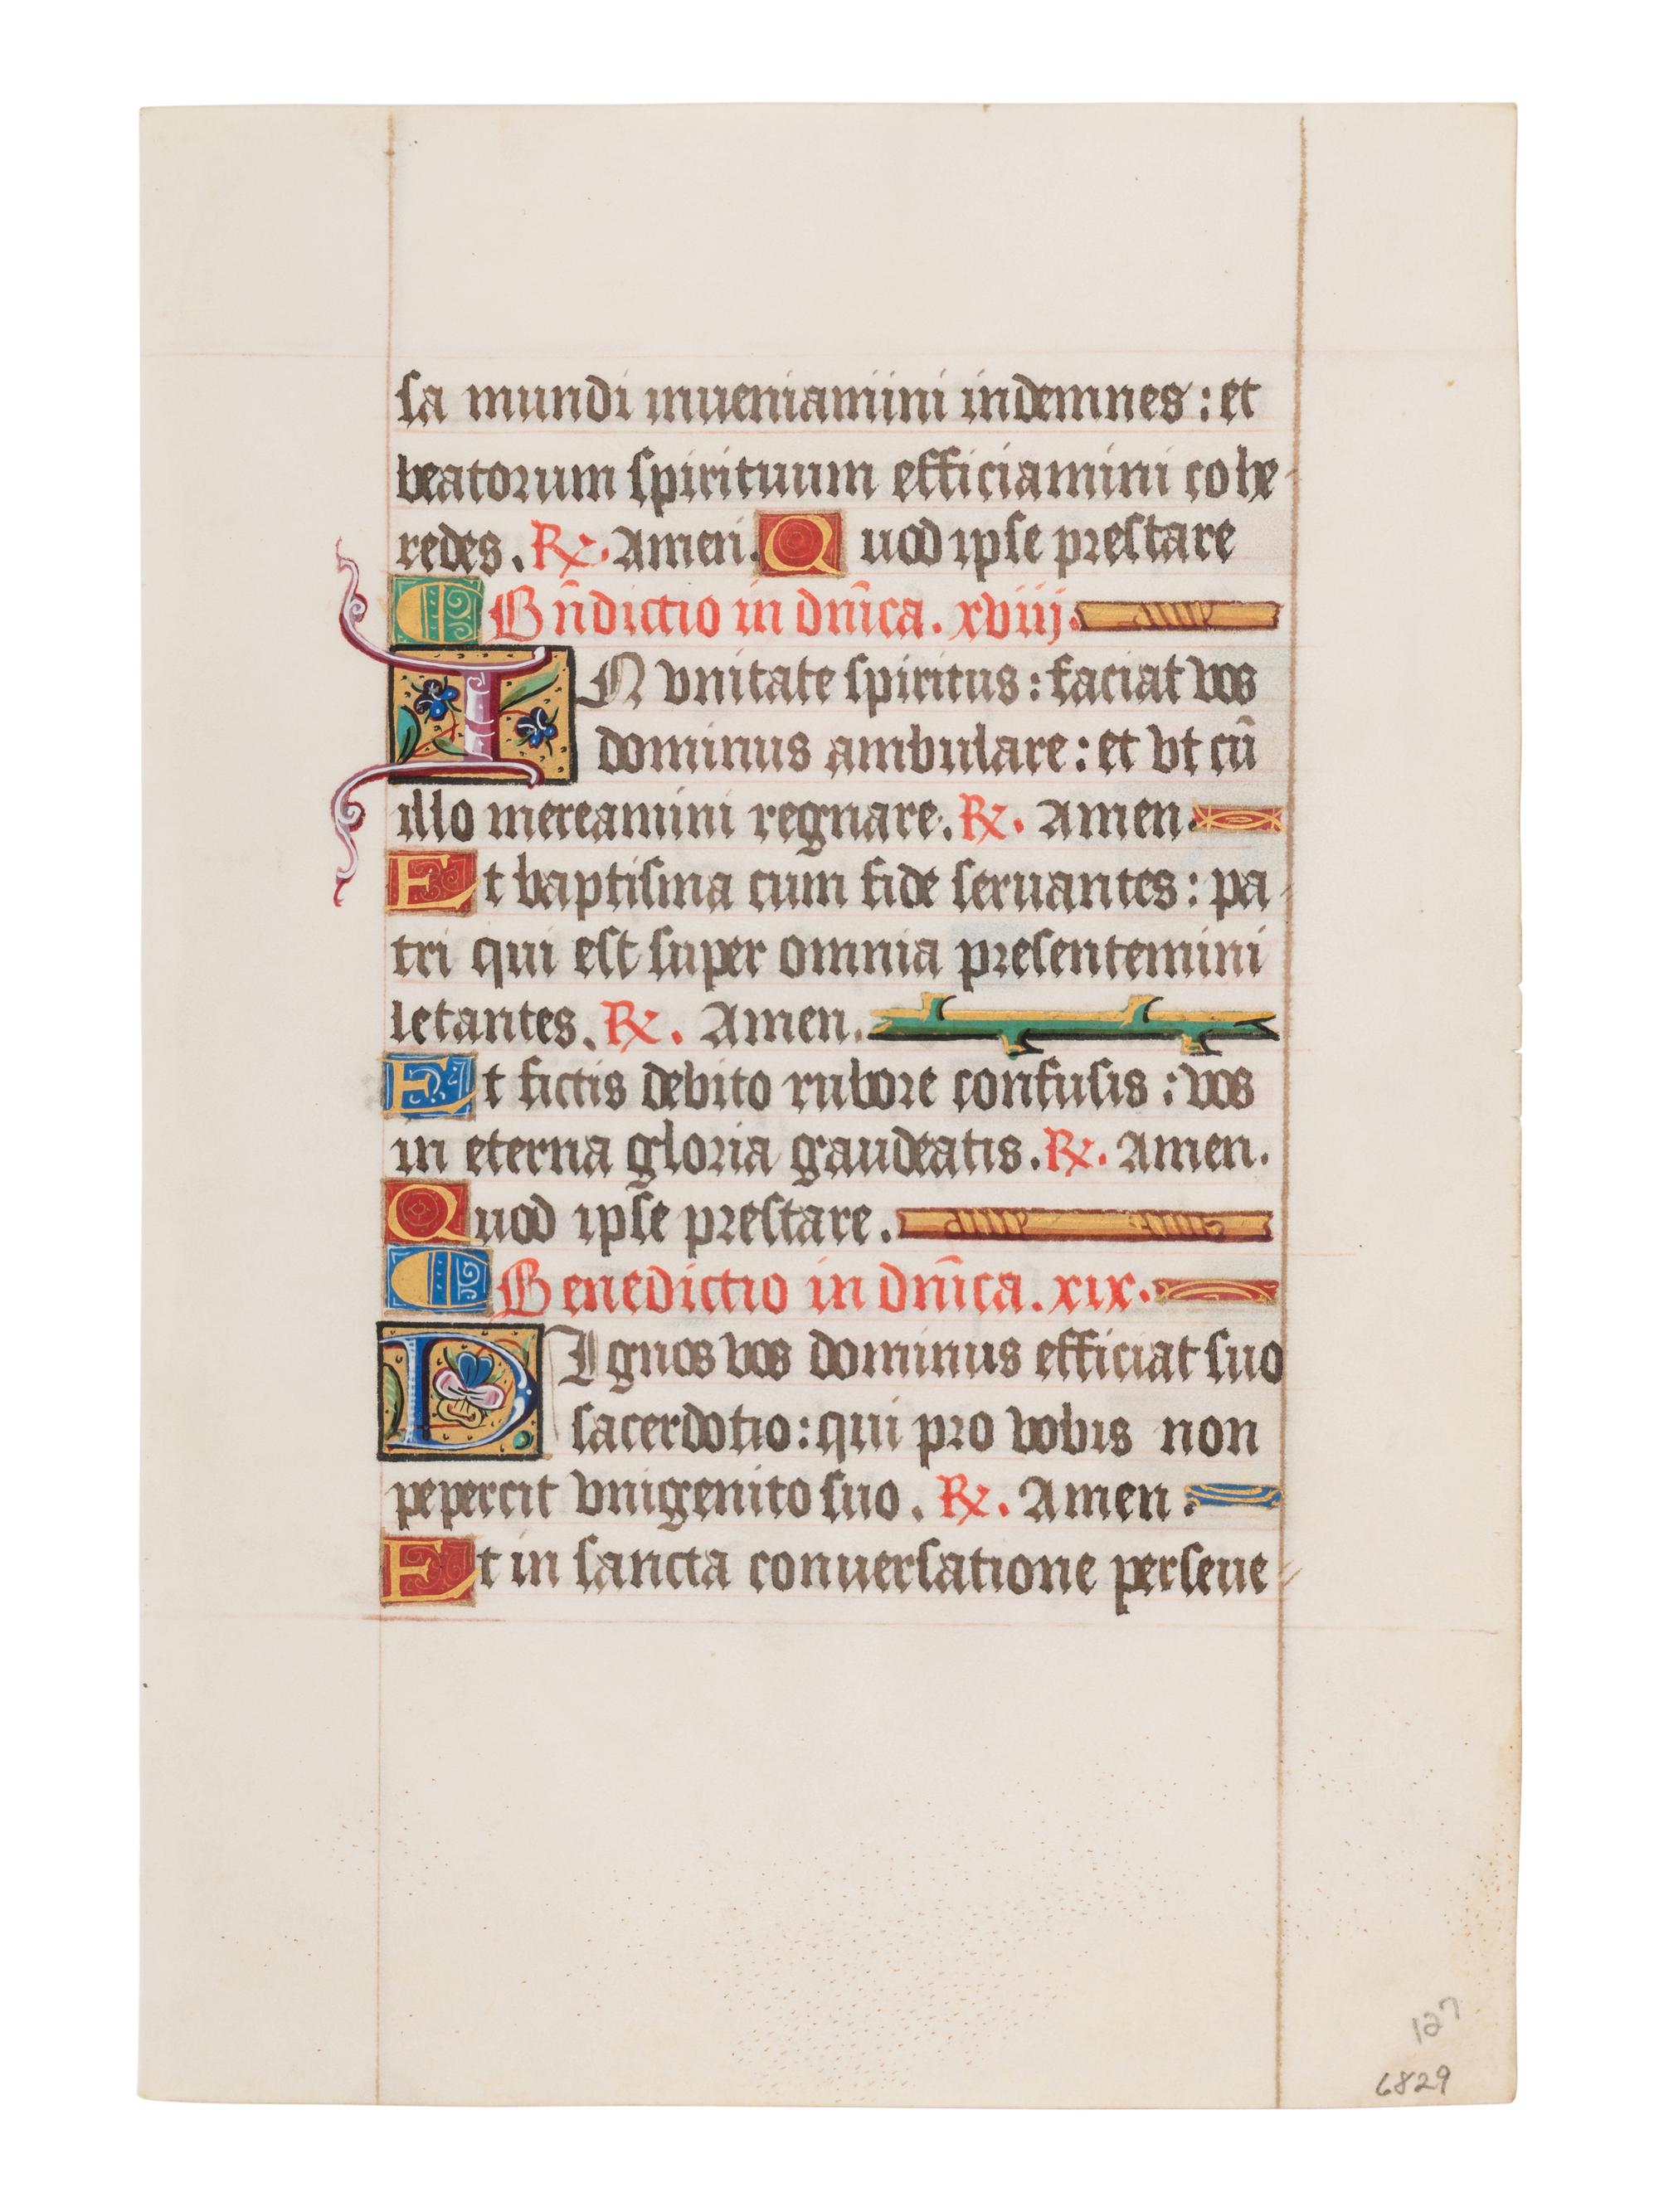 sa mundi inueniamini indemnes : et
beatorum spirituum efficiamini cohe-
redes. R. Amen. Quod ipse prestare
Bn̄dictio in dn̄ica. xviij.
IN vnitate spiritus : faciat vos
dominus ambulare : et vt cū
illo mereamini regnare. R. Amen.
Et baptisma cum fide seruantes : pa-
tri qui est super omnia presentemini
letantes. R. Amen.
Et fictis debito rubore confusis : vos
in eterna gloria gaudeatis. R. Amen.
Quod ipse prestare.
Benedictio in dn̄ica. xix.
DIgnos vos dominus efficiat suo
sacerdotio : qui pro vobis non
pepercit vnigenito suo. R. Amen.
Et in sancta conuersatione perseue-
127
6829